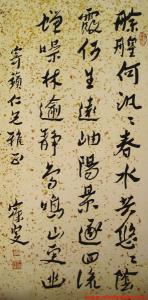 艅艎何汎々春水共悠々陰
霞生遠岫陽景逐回流
蟬噪林逾靜鳥鳴山更幽
仁兄雅正
寐叟